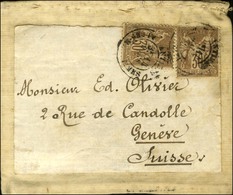 Monsieur Ed. Olivier
2 Rue de Candolle
Genève
Suisse